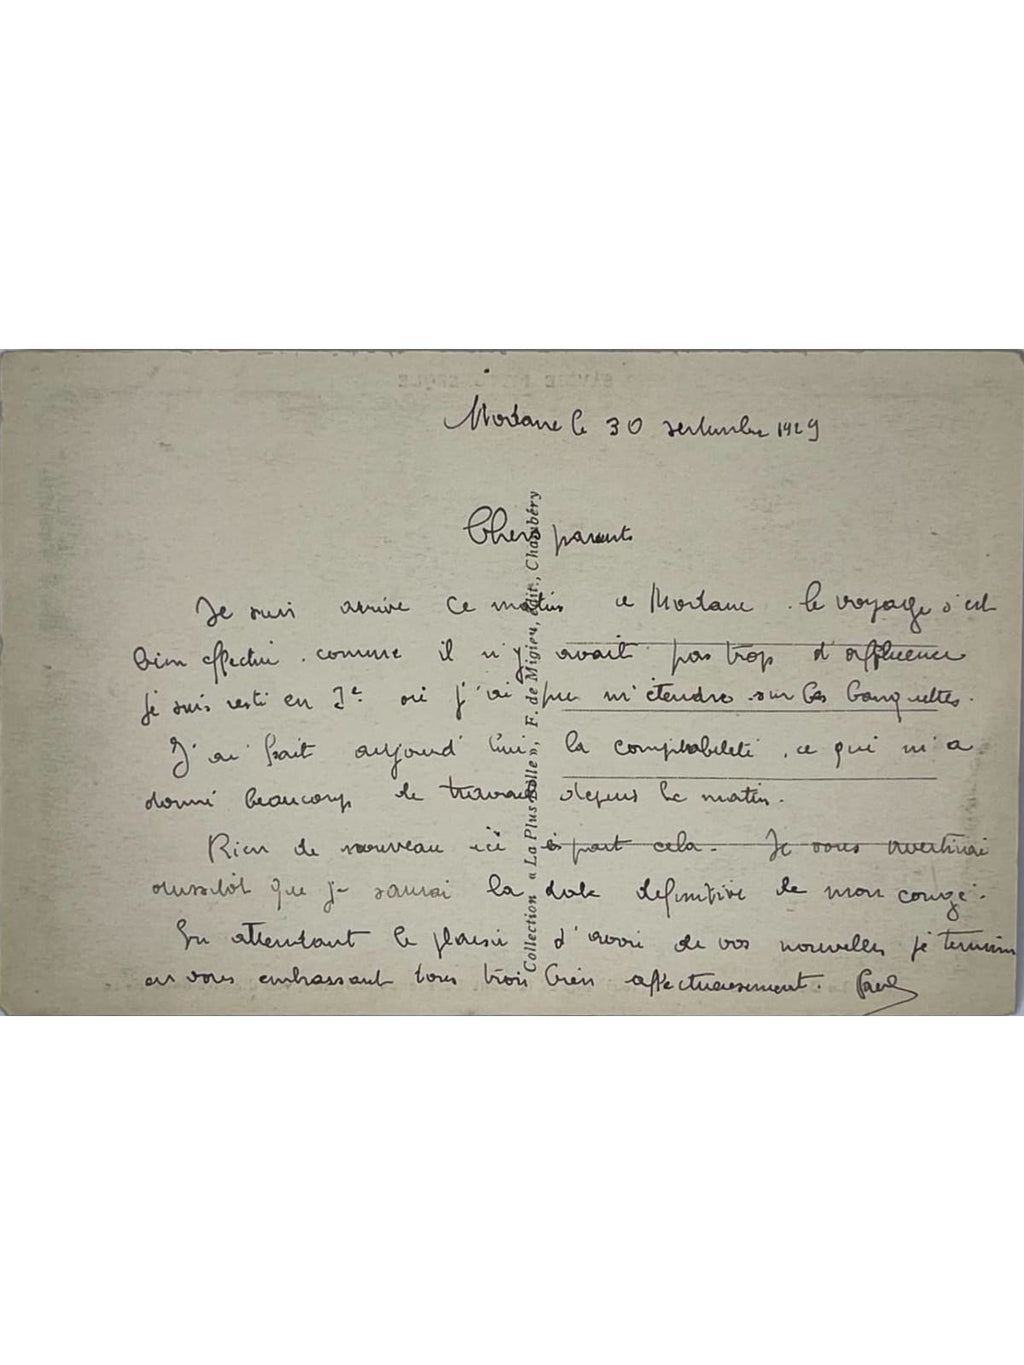 Modane le 30 septembre 1929
Chers parents
Je suis arrivé ce matin à Modane. le voyage s'est
bien effectué. comme il n'y avait pas trop d'affluence
je suis resté en 2e où j'ai pu m'étendre sur les banquettes.
J'ai fait aujourd'hui la comptabilité, ce qui m'a
donné beaucoup de travail depuis le matin.
Rien de nouveau ici à part cela. Je vous avertirai
aussitôt que je saurai la date définitive de mon congé.
En attendant le plaisir d'avoir de vos nouvelles je termine
en vous embrassant tous trois bien affectueusement. Paul
Collection « La Plus Belle », F. de Migieu, édit., Chambéry